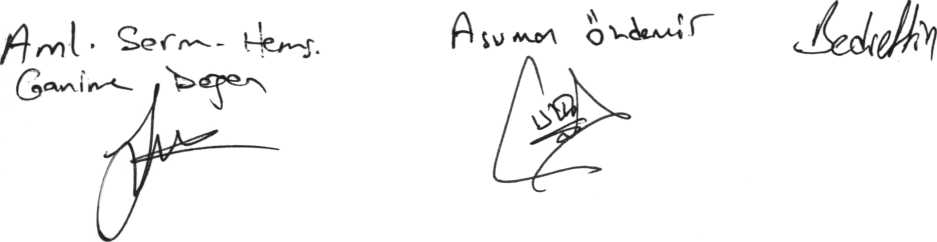 Aml. Serm. Hems.
Ganime Dogen
Asuman Öndemir
Bedrettin